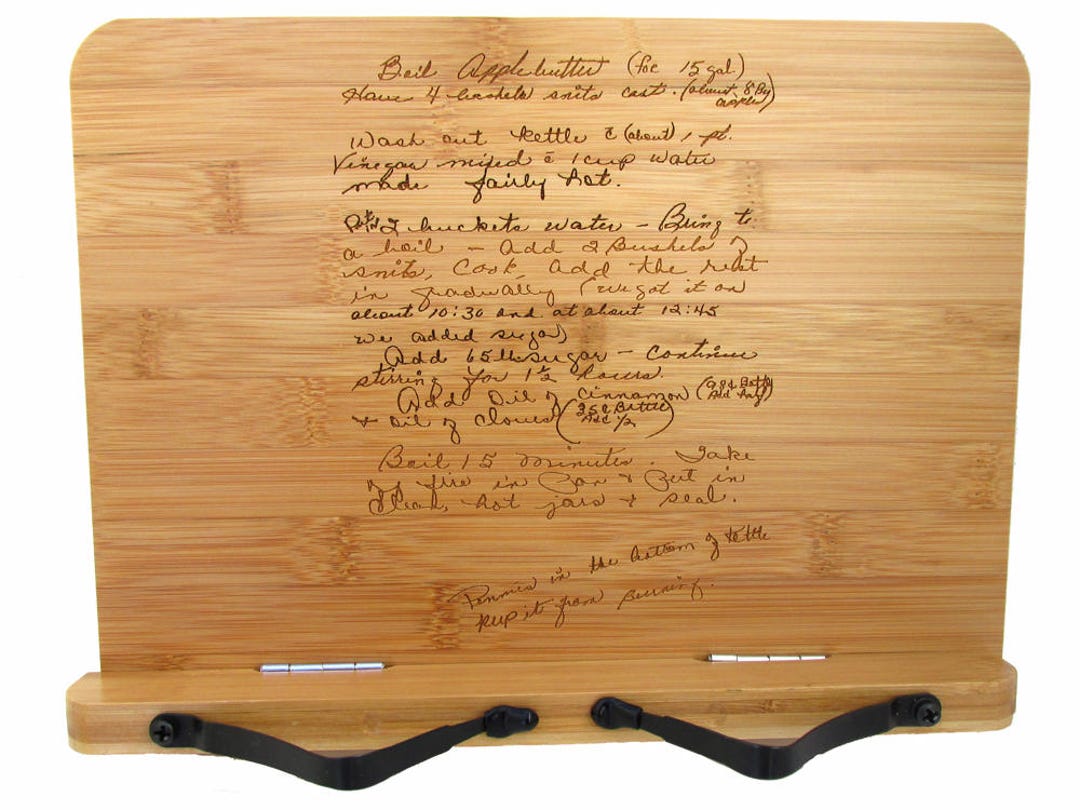 Boil Applebutter (for 15 gal.)
Have 4 bushels snits cut. (about 8 Bu apples)
Wash out kettle c̄ (about) 1 pt.
Vinegar mixed c̄ 1 cup water
made fairly hot.
Put 2 buckets water - Bring to
a boil - add 2 Bushels of
snits, Cook, add the rest
in gradually (we got it on
about 10:30 and at about 12:45
we added sugar)
Add 65 lb sugar - continue
stirring for 1½ hours.
Add Oil of Cinnamon (98¢ Bottle Add half)
+ Oil of Cloves (35¢ Bottle Add ½)
Boil 15 minutes. Take
off fire in Pan + Put in
Clean, hot jars + seal.
Pennies in the bottom of kettle
keep it from burning.